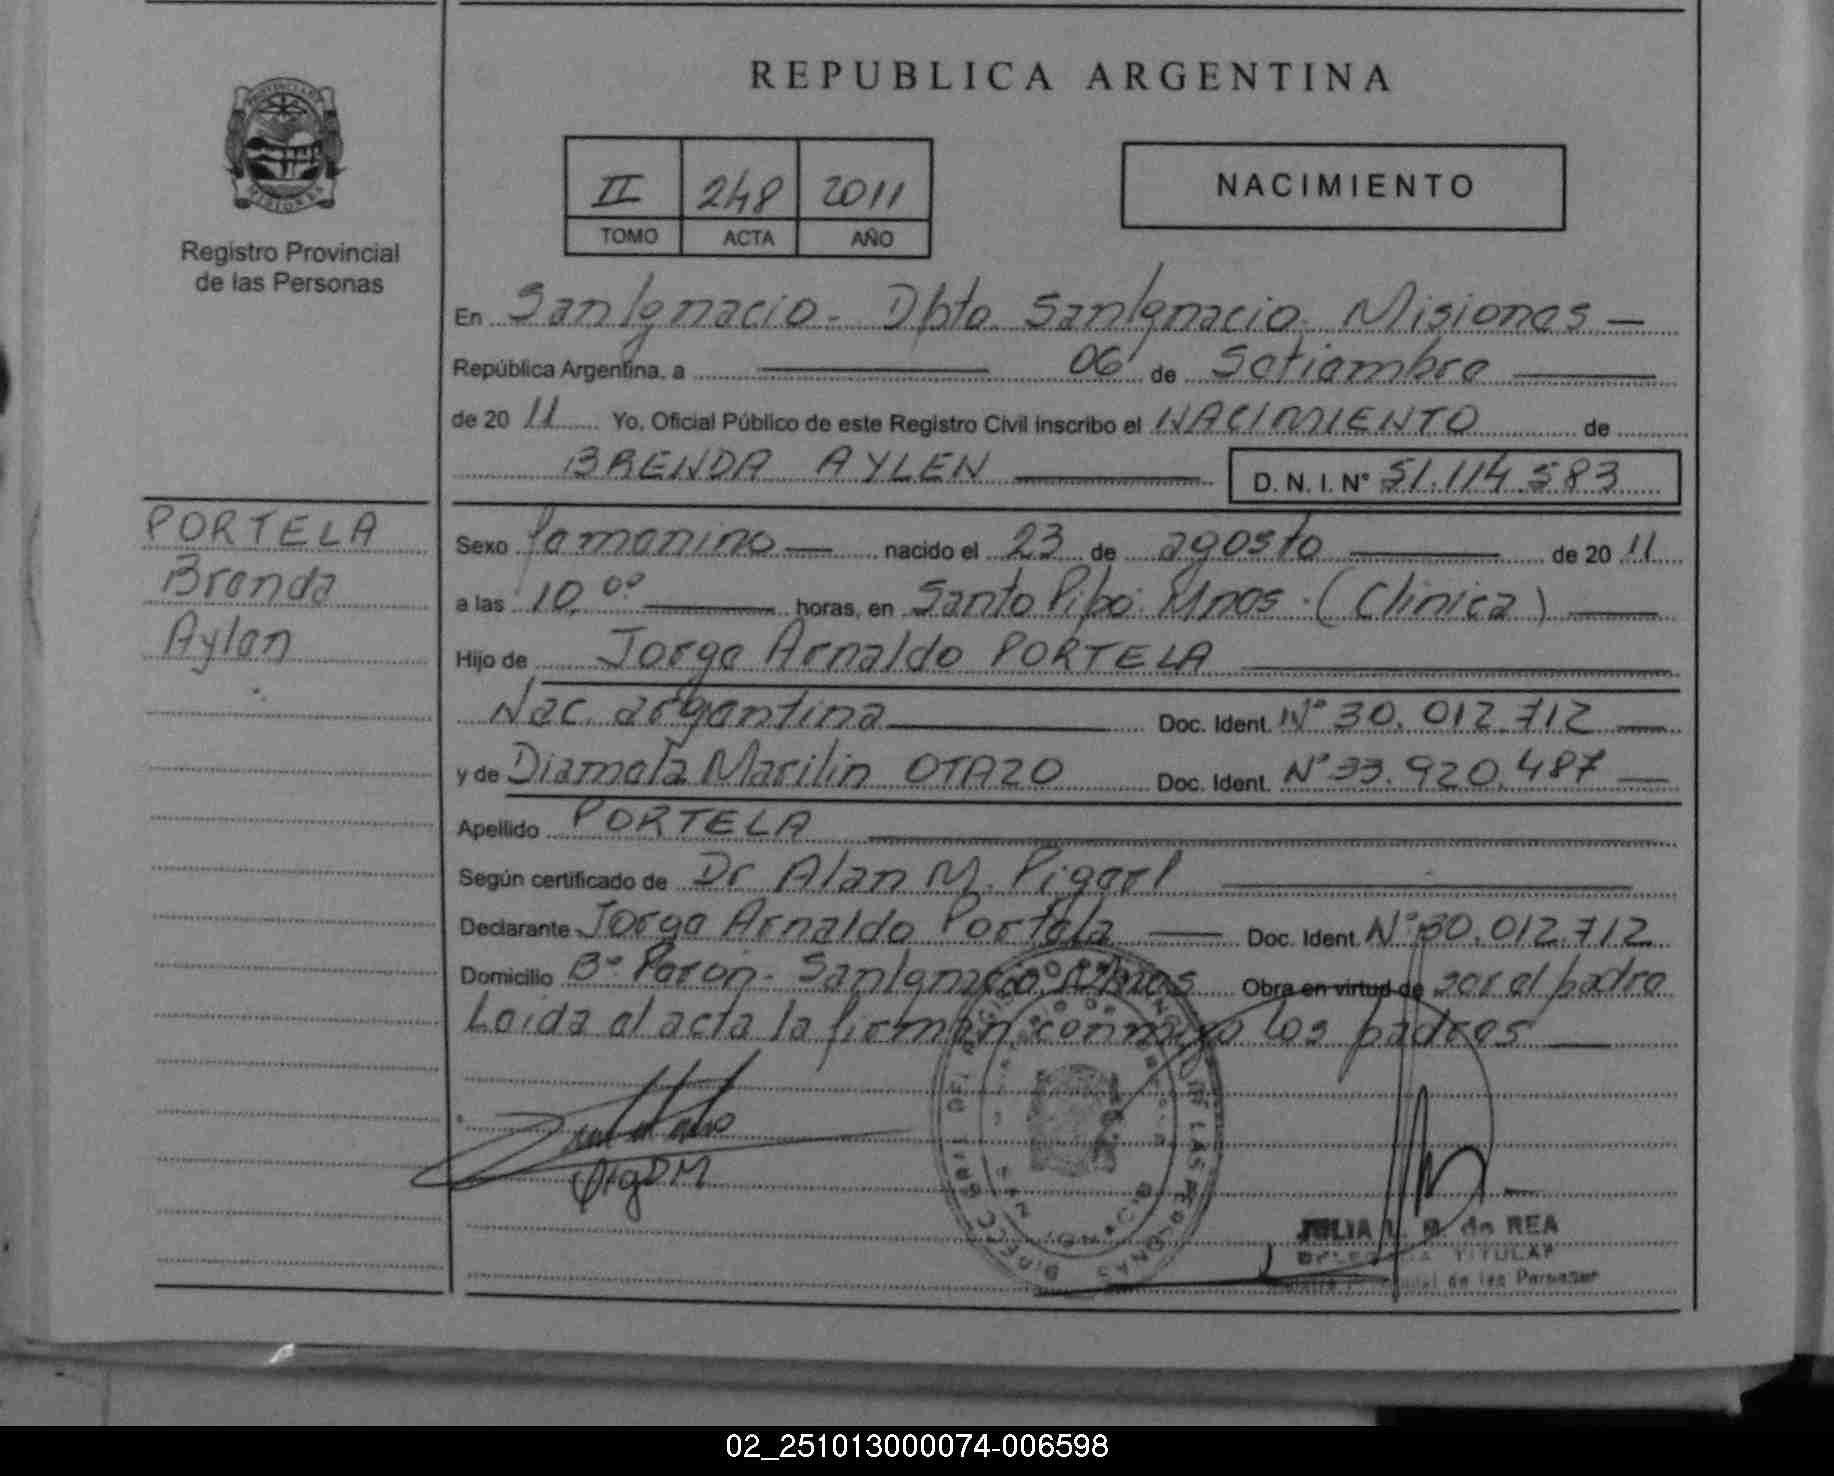 REPUBLICA ARGENTINA
PROVINCIA DE
MISIONES
Registro Provincial
de las Personas
II 248 2011
TOMO ACTA AÑO
NACIMIENTO
En San Ignacio - Dpto San Ignacio. Misiones —
República Argentina, a 06 de Setiembre
de 20 11 Yo, Oficial Público de este Registro Civil inscribo el NACIMIENTO de
BRENDA AYLEN D. N. I. N° 51.114.583
PORTELA
Brenda
Aylen
Sexo femenino nacido el 23 de agosto de 20 11
a las 10,00 horas, en Santo Pipó. Mnes. (Clinica)
Hijo de Jorge Arnaldo PORTELA
Nac. argentina Doc. Ident. N° 30.012.712
y de Diamela Marilin OTAZO Doc. Ident. N° 33.920.487
Apellido PORTELA
Según certificado de Dr Alan M.
Declarante Jorge Arnaldo Portela Doc. Ident. N° 30.012.712
Domicilio B° Perón - San Ignacio Mnes Obra en virtud de ser el padre
Leida el acta la firman conmigo los padres
SAN IGNACIO
JULIA L. de REA
TITULAR
de las Personas
02_251013000074-006598